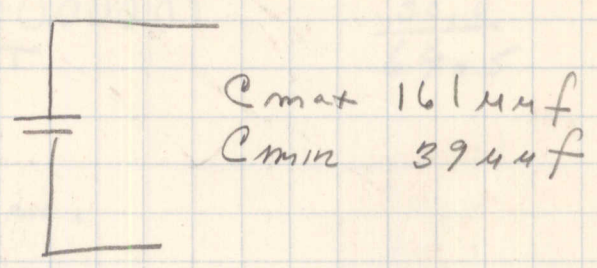 Cmax 161 μμf
Cmin 39 μμf